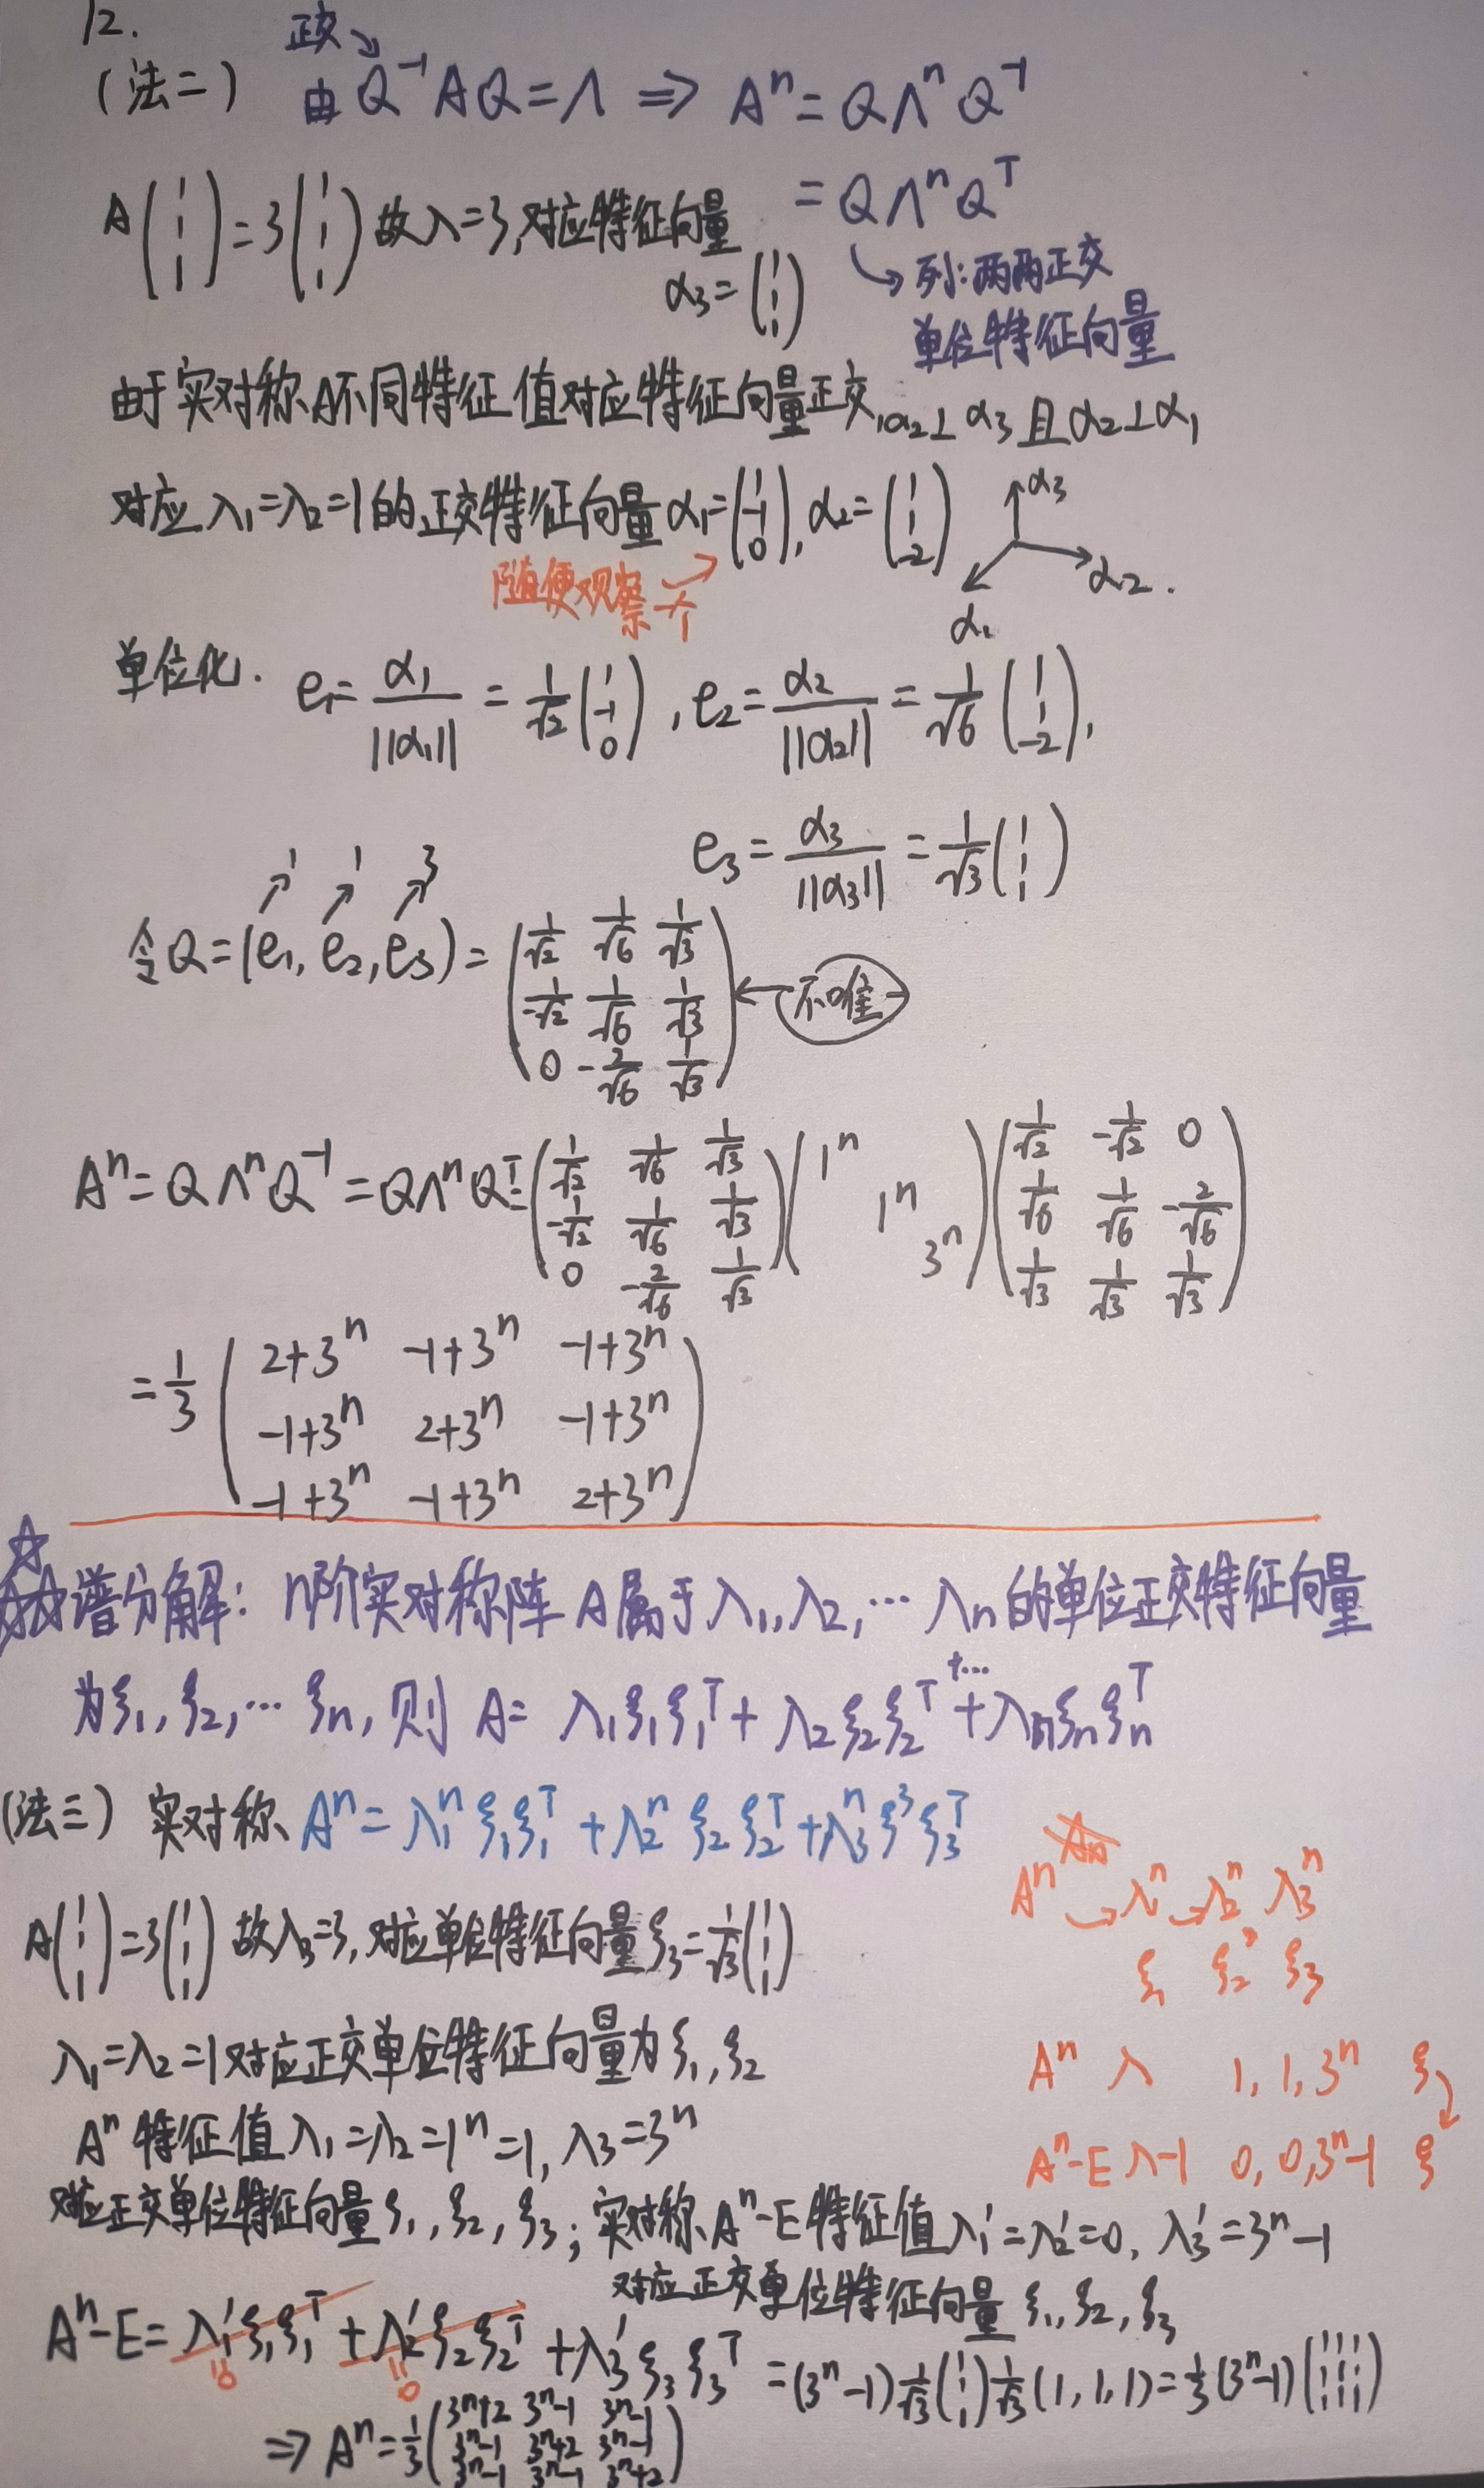 12.
(法二) 由 Q⁻¹AQ=Λ ⇒ Aⁿ=QΛⁿQ⁻¹
正交↘
=QΛⁿQᵀ
↳列:两两正交
单位特征向量
A(1 1 1)=3(1 1 1) 故λ=3,对应特征向量
α₃=(1 1 1)
由于实对称A不同特征值对应特征向量正交,α₂⊥α₃且α₂⊥α₁
对应λ₁=λ₂=1的正交特征向量α₁=(1 -1 0), α₂=(1 1 -2)
α₃
α₂.
α₁
随便观察一个
单位化. e₁=α₁/||α₁||=1/√2(1 -1 0), e₂=α₂/||α₂||=1/√6(1 1 -2),
e₃=α₃/||α₃||=1/√3(1 1 1)
1 1 3
令Q=(e₁,e₂,e₃)=
1/√2 1/√6 1/√3
-1/√2 1/√6 1/√3 ← 不唯一
0 -2/√6 1/√3
Aⁿ=QΛⁿQ⁻¹=QΛⁿQᵀ=
(1/√2 1/√6 1/√3)(1ⁿ )(1/√2 -1/√2 0)
(-1/√2 1/√6 1/√3)( 1ⁿ )(1/√6 1/√6 -2/√6)
(0 -2/√6 1/√3)( 3ⁿ)(1/√3 1/√3 1/√3)
=1/3
2+3ⁿ -1+3ⁿ -1+3ⁿ
-1+3ⁿ 2+3ⁿ -1+3ⁿ
-1+3ⁿ -1+3ⁿ 2+3ⁿ
☆☆☆谱分解: n阶实对称阵A属于λ₁,λ₂,…λₙ的单位正交特征向量
为ξ₁,ξ₂,…ξₙ,则 A=λ₁ξ₁ξ₁ᵀ+λ₂ξ₂ξ₂ᵀ+…+λₙξₙξₙᵀ
(法三) 实对称 Aⁿ=λ₁ⁿξ₁ξ₁ᵀ+λ₂ⁿξ₂ξ₂ᵀ+λ₃ⁿξ³ξ₃ᵀ
Aⁿ→λ₁ⁿ→λ₂ⁿ λ₃ⁿ
ξ₁ ξ₂ ξ₃
A(1 1 1)=3(1 1 1) 故λ₃=3,对应单位特征向量ξ₃=1/√3(1 1 1)
λ₁=λ₂=1对应正交单位特征向量为ξ₁,ξ₂
Aⁿ λ 1,1,3ⁿ ξ
Aⁿ特征值λ₁=λ₂=1ⁿ=1,λ₃=3ⁿ
Aⁿ-E λ-1 0,0,3ⁿ-1 ξ
对应正交单位特征向量ξ₁,ξ₂,ξ₃;实对称Aⁿ-E特征值λ₁'=λ₂'=0, λ₃'=3ⁿ-1
对应正交单位特征向量ξ₁,ξ₂,ξ₃
Aⁿ-E=λ₁'ξ₁ξ₁ᵀ+λ₂'ξ₂ξ₂ᵀ+λ₃'ξ₃ξ₃ᵀ=(3ⁿ-1)1/√3(1 1 1)1/√3(1,1,1)=1/3(3ⁿ-1)(1 1 1 1 1 1 1 1 1)
=0 =0
⇒Aⁿ=1/3
3ⁿ+2 3ⁿ-1 3ⁿ-1
3ⁿ-1 3ⁿ+2 3ⁿ-1
3ⁿ-1 3ⁿ-1 3ⁿ+2